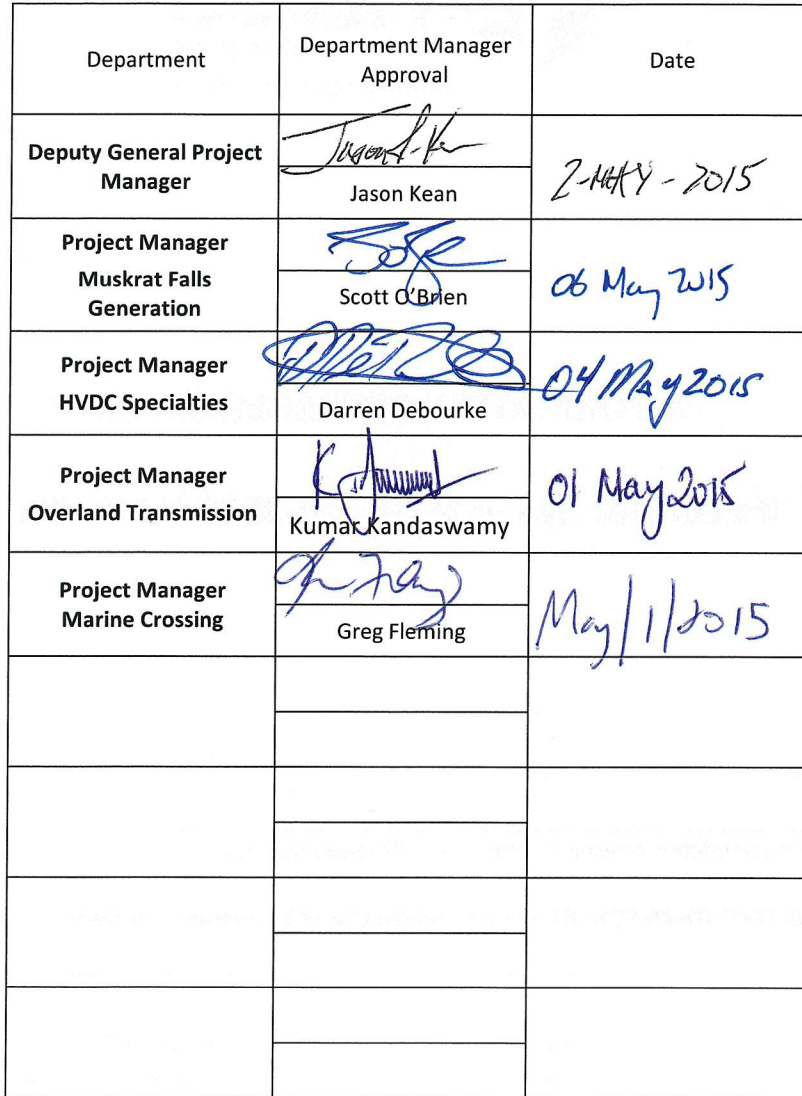 Department
Department Manager
Approval
Date
Deputy General Project
Manager
Jason Kean
2-MAY-2015
Project Manager
Muskrat Falls
Generation
Scott O'Brien
06 May 2015
Project Manager
HVDC Specialties
Darren Debourke
04 May 2015
Project Manager
Overland Transmission
Kumar Kandaswamy
01 May 2015
Project Manager
Marine Crossing
Greg Fleming
May/1/2015